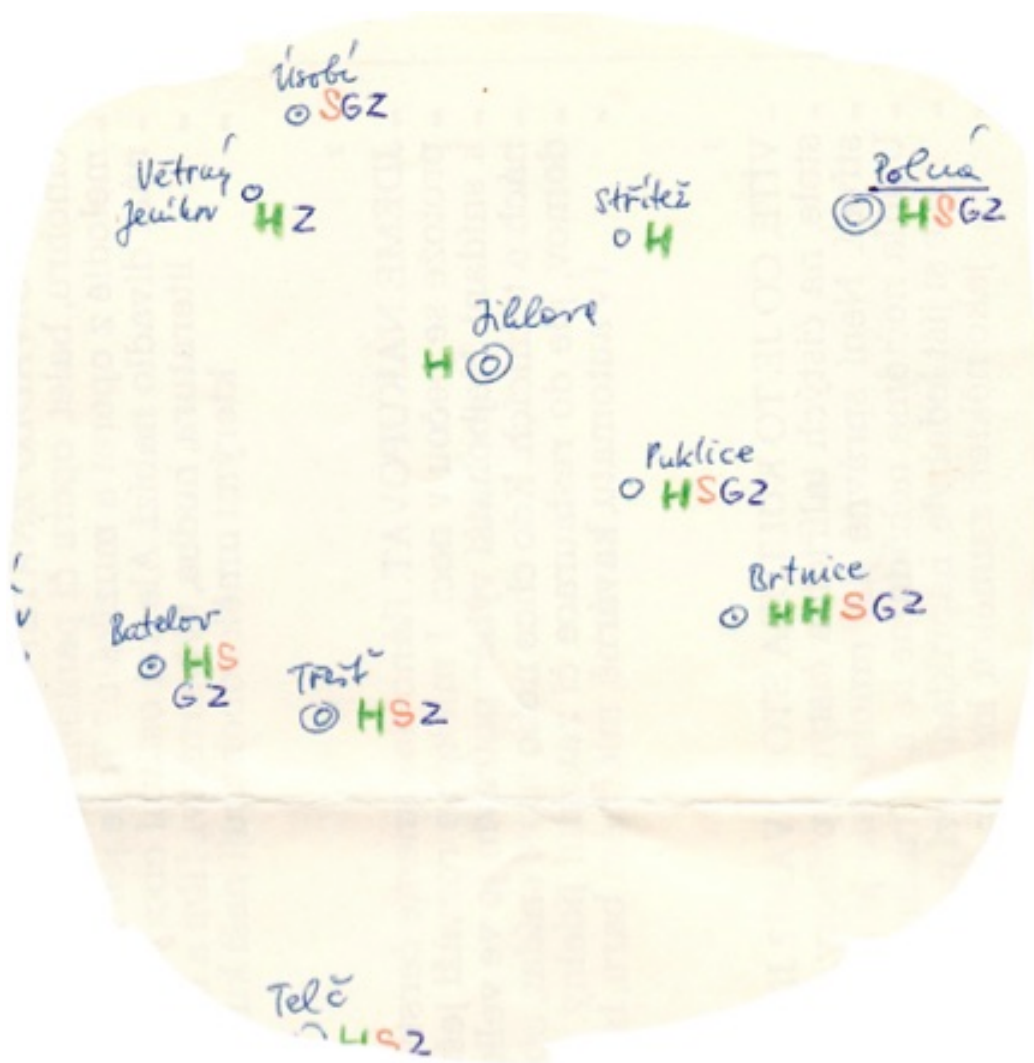 Úsobí
SGZ
Větrný
Jeníkov
HZ
Střítež
H
Polná
HSGZ
Jihlava
H
Puklice
HSGZ
Brtnice
HHSGZ
Batelov
HS
GZ
Třešť
HSZ
Telč
HSZ